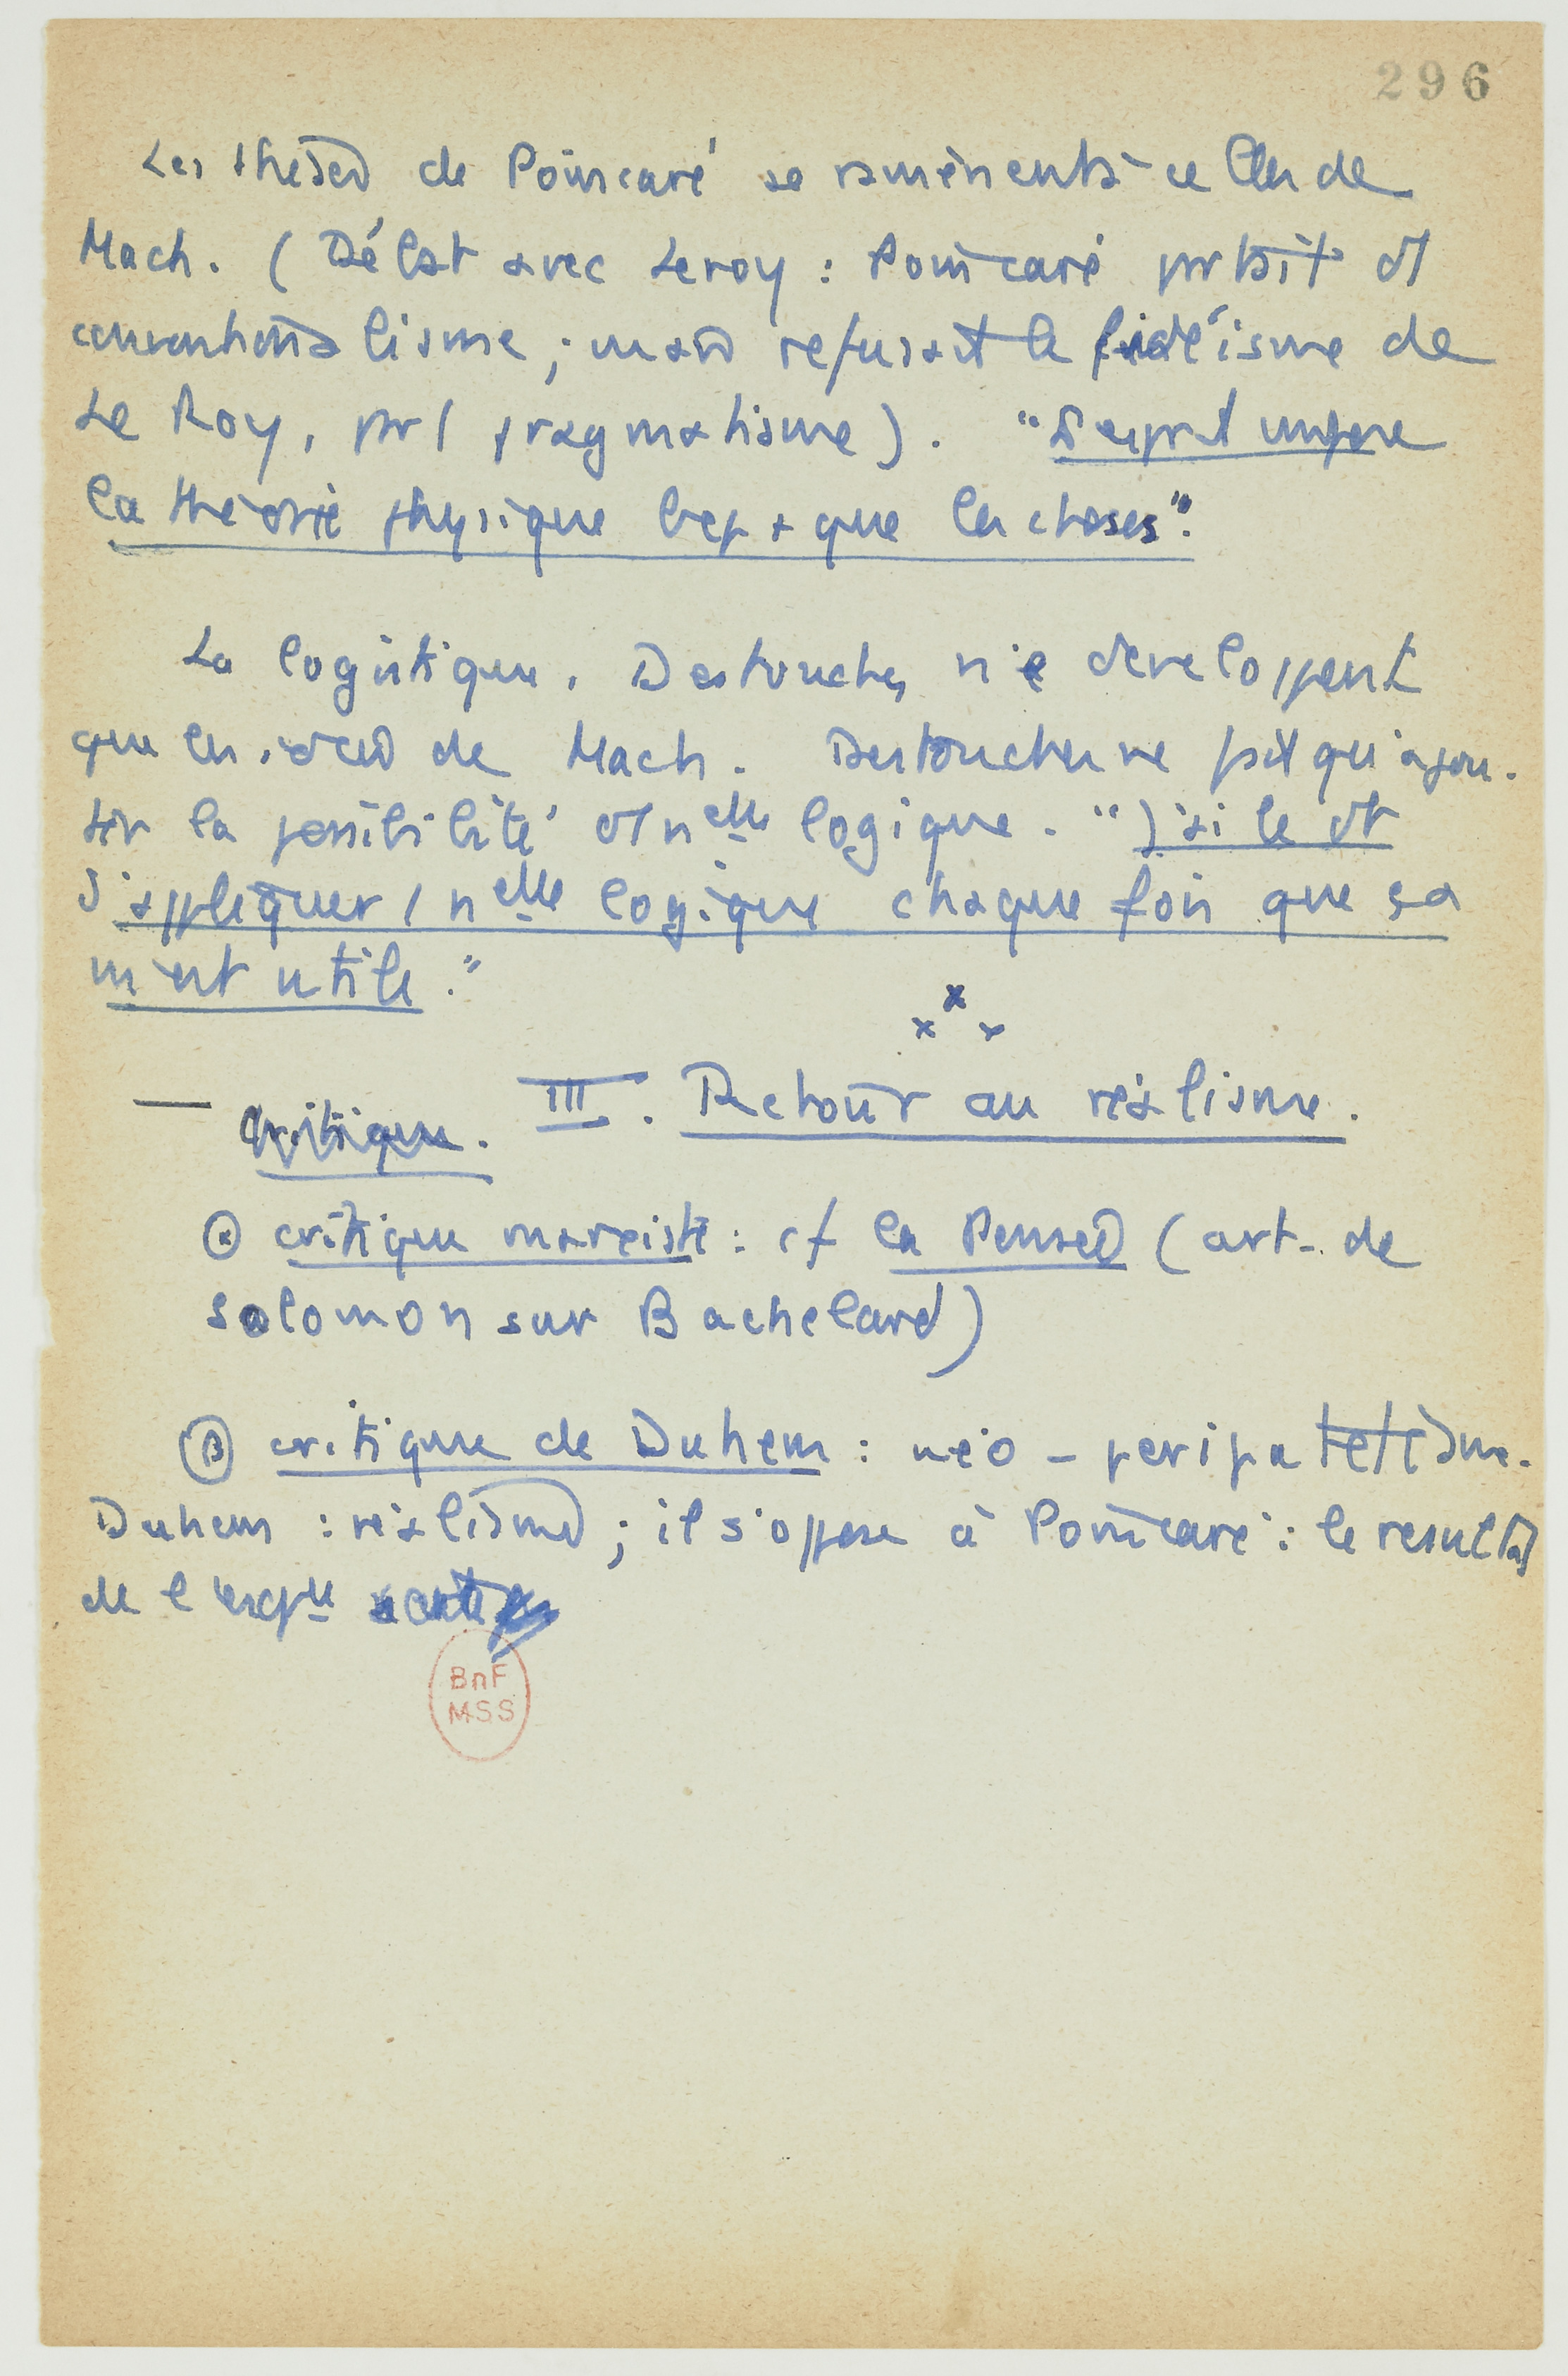 296
Les thèses de Poincaré se ramènent à celles de
Mach. (Débat avec Leroy : Poincaré partait d'1
conventionalisme ; mais refusait le fidéisme de
Le Roy, pr 1 pragmatisme). "L'esprit impose
la théorie physique bcp + que les choses".
La logistique, Destouches n'e développent
que les idées de Mach. Destouches ne fait qu'ajou-
ter la possibilité d'1 nelle logique. "J'ai le dt
d'appliquer 1 nelle logique chaque fois que ça
m'est utile."
x x x
— Critique. III. Retour au réalisme.
α critique marxiste : cf La Pensée (art. de
Solomon sur Bachelard)
β critique de Duhem : néo-péripatétisme.
Duhem : réalisme ; il s'oppose à Poincaré : le résultat
de l'expce
BnF
MSS